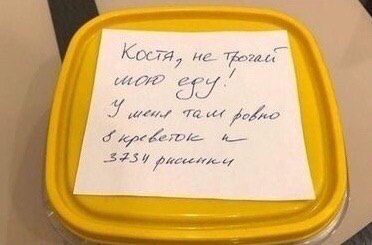 Коста, не трогай
мою еду!
У меня там ровно
8 креветок и
3734 рисинки